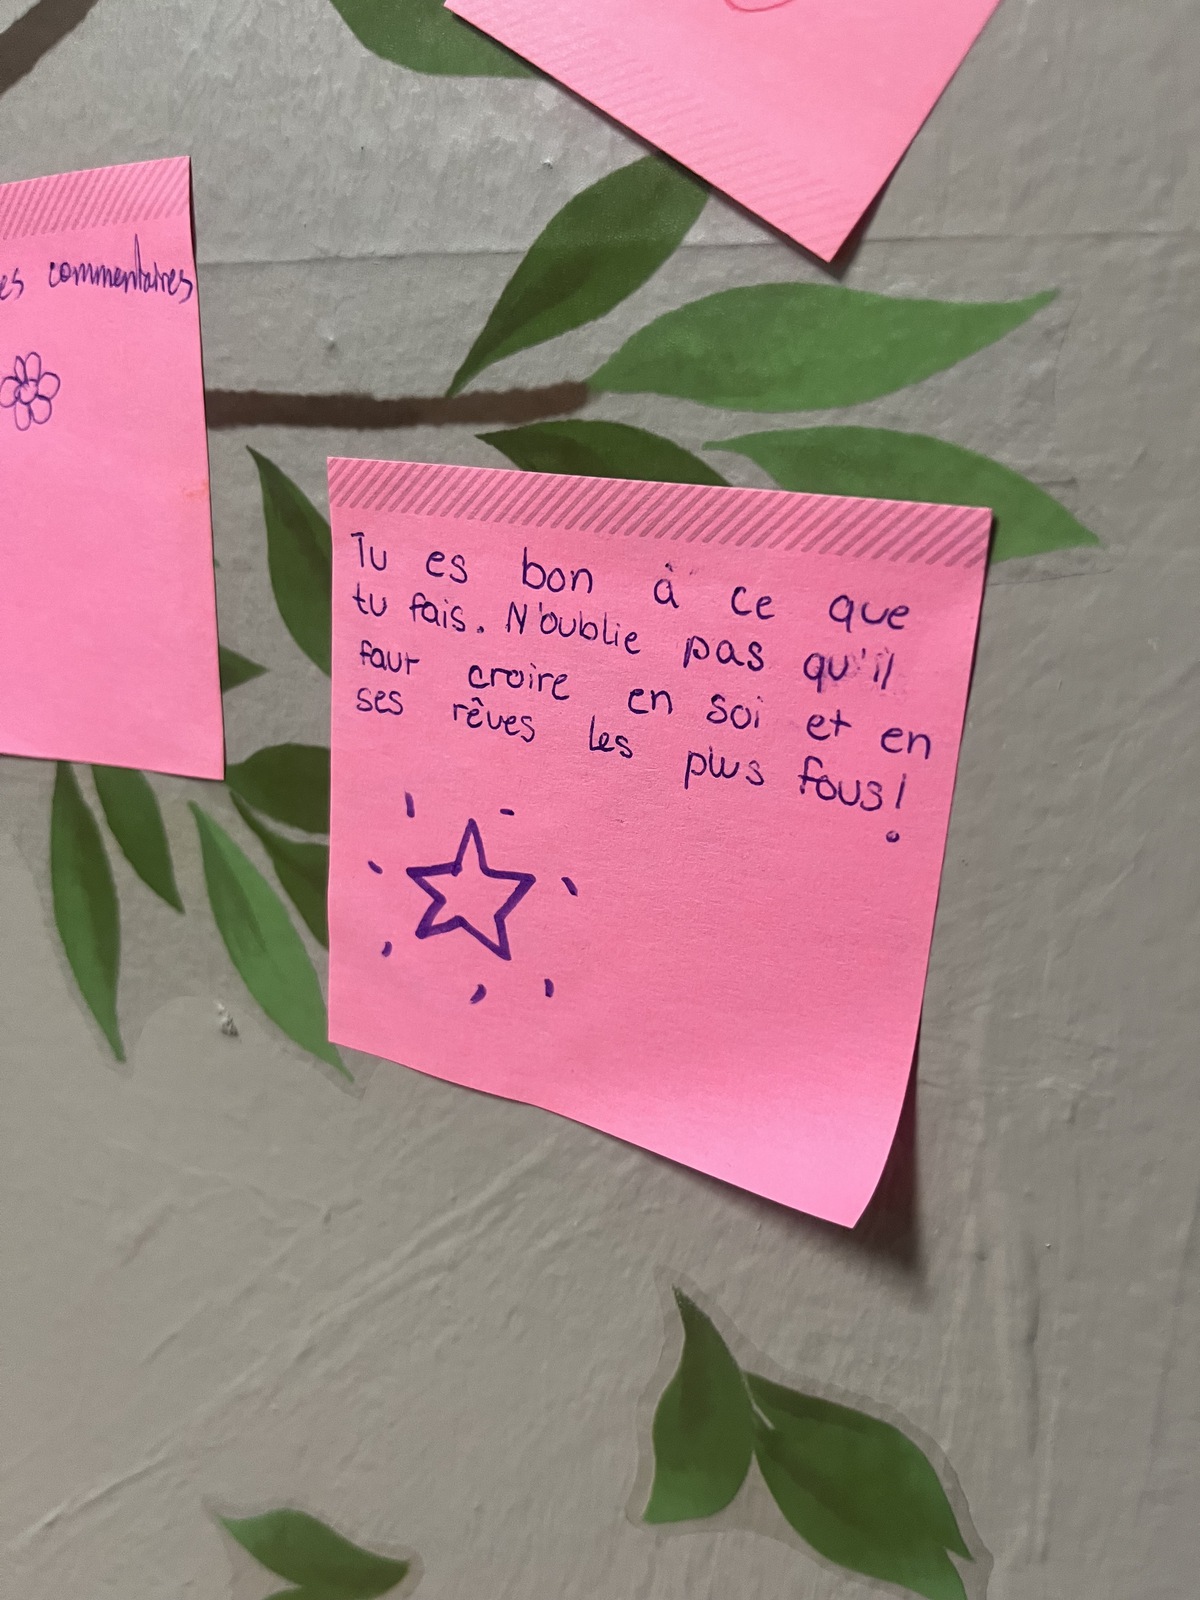 es commentaires
Tu es bon à ce que
tu fais. N'oublie pas qu'il
faut croire en soi et en
ses rêves les plus fous!